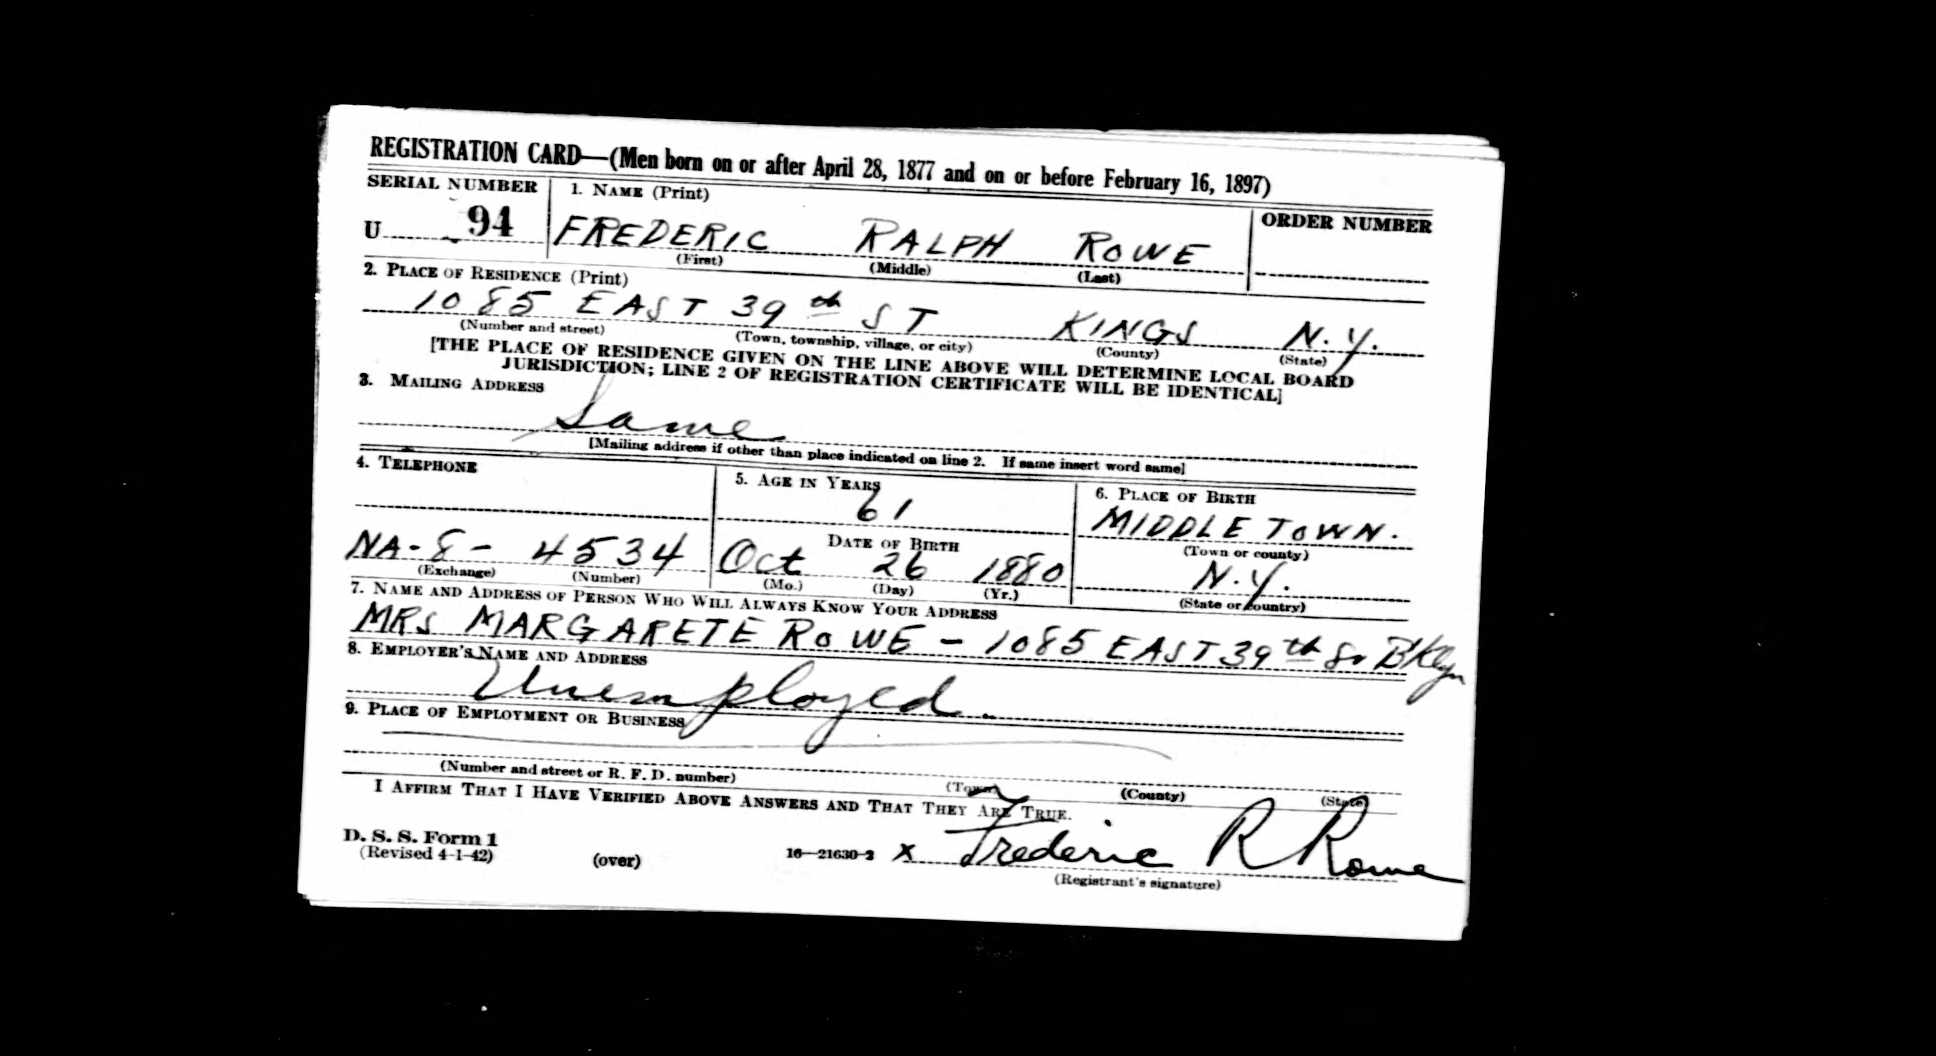 REGISTRATION CARD—(Men born on or after April 28, 1877 and on or before February 16, 1897)
SERIAL NUMBER 1. NAME (Print) ORDER NUMBER
U 94 FREDERIC RALPH ROWE
(First) (Middle) (Last)
2. PLACE OF RESIDENCE (Print)
1085 EAST 39th ST KINGS N.Y.
(Number and street) (Town, township, village, or city) (County) (State)
[THE PLACE OF RESIDENCE GIVEN ON THE LINE ABOVE WILL DETERMINE LOCAL BOARD
JURISDICTION; LINE 2 OF REGISTRATION CERTIFICATE WILL BE IDENTICAL]
3. MAILING ADDRESS
Same
[Mailing address if other than place indicated on line 2. If same insert word same]
4. TELEPHONE 5. AGE IN YEARS 6. PLACE OF BIRTH
61 MIDDLETOWN.
DATE OF BIRTH (Town or county)
NA-8- 4534 Oct 26 1880 N.Y.
(Exchange) (Number) (Mo.) (Day) (Yr.) (State or country)
7. NAME AND ADDRESS OF PERSON WHO WILL ALWAYS KNOW YOUR ADDRESS
MRS MARGARETE ROWE - 1085 EAST 39th St BKlyn
8. EMPLOYER'S NAME AND ADDRESS
Unemployed.
9. PLACE OF EMPLOYMENT OR BUSINESS
(Number and street or R. F. D. number) (Town) (County) (State)
I AFFIRM THAT I HAVE VERIFIED ABOVE ANSWERS AND THAT THEY ARE TRUE.
D. S. S. Form 1
(Revised 4-1-42) (over) 16—21630-2 X Frederic R Rowe
(Registrant's signature)